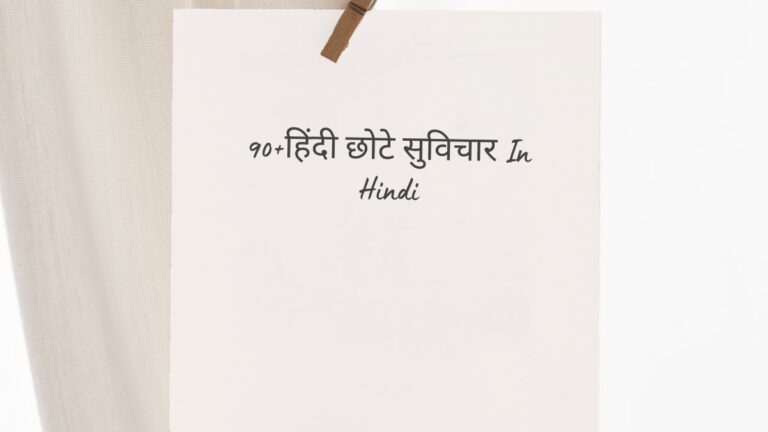 90+हिंदी छोटे सुविचार In
Hindi